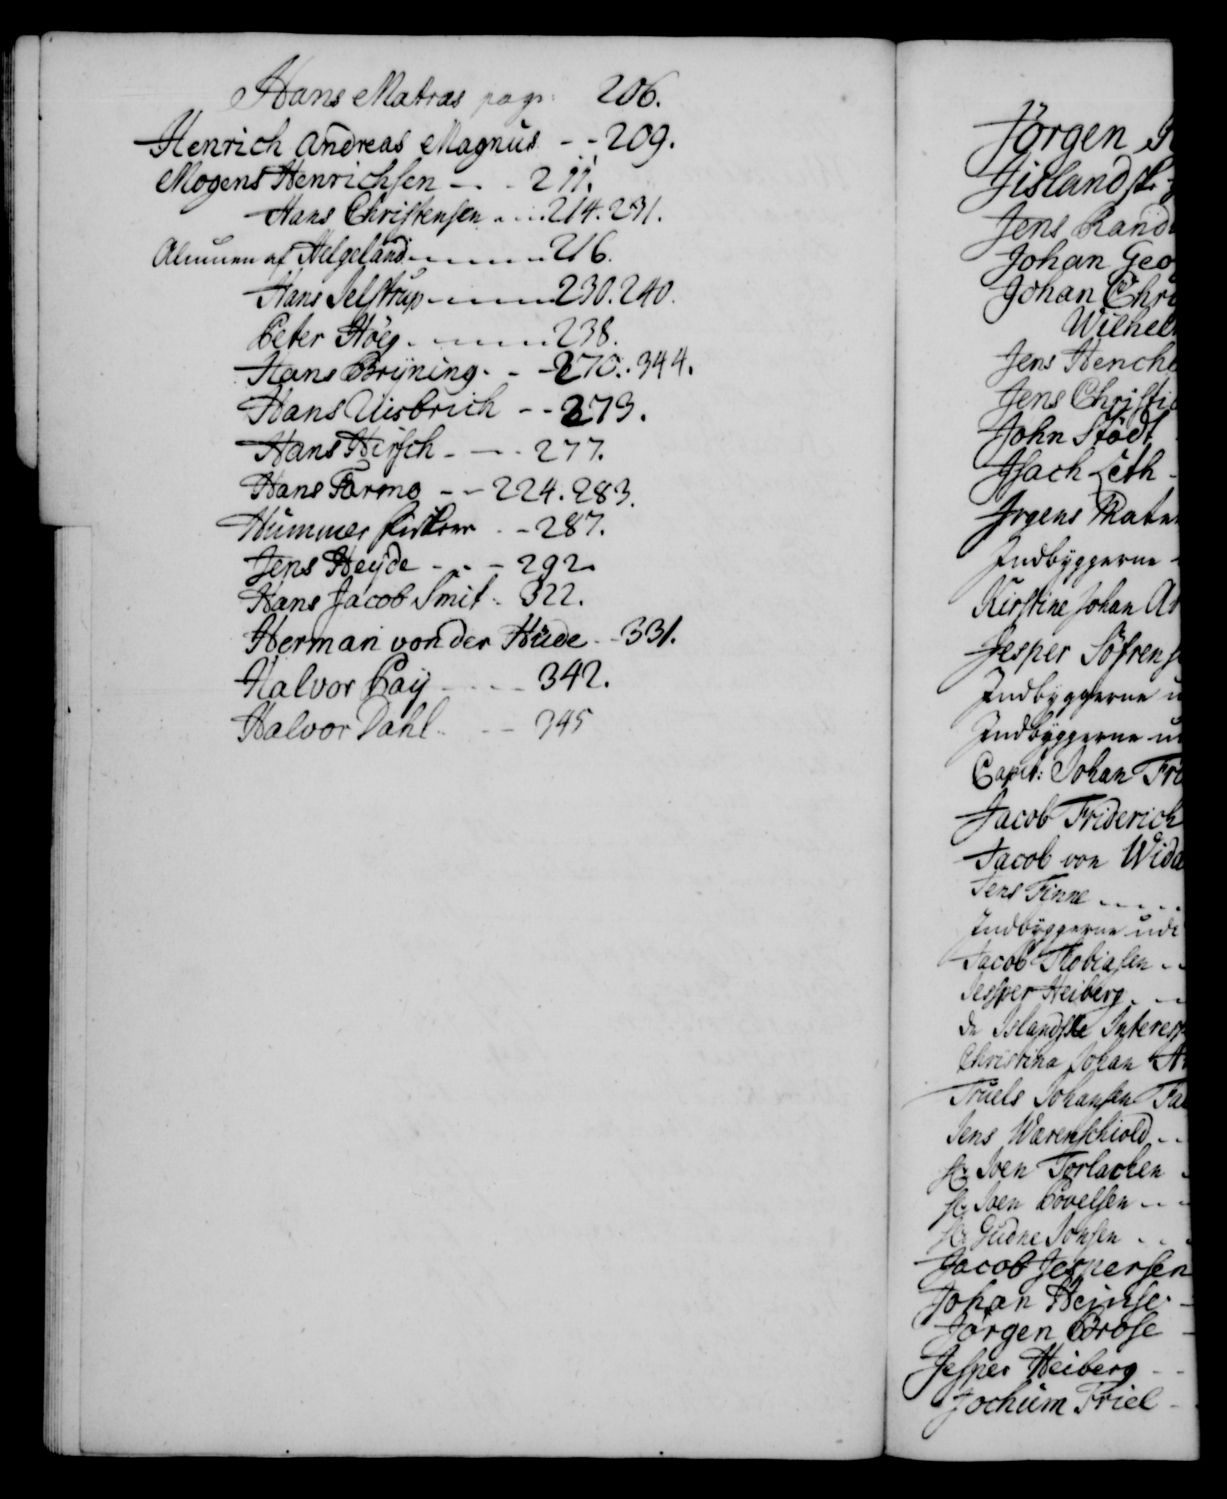 Hans Matras pag: 206.
Henrich Andreas Magnus - - 209.
Mogens Henrichsen - . - 211.
Hans Christensen . . . 214. 231.
Almuen af Helgeland - - - - - 216.
Hans Jelstrup - - - - - 230. 240.
Peter Höeg . - - - - 238.
Hans Bryning - - - 270. 344.
Hans Uisbrich - - 273.
Hans Hirsch - - - 277.
Hans Formo - - 224. 283.
Hummer - - 287.
Jens Heyde - - - 292.
Hans Jacob Smit . 322.
Herman von der Hude - - 331.
Halvor Pay - - - - 342.
Halvor Dahl . - - 345
Jörgen
Jislandsk
Jens
Johan Geo
Johan Chri
Wilhel
Jens Henche
Jens Christi
John Stödt
Isach Leth -
Jrgens
Indbyggerne -
Kirstine Johan
Jesper Söfrens
Indbyggerne u
Indbyggerne u
Capit: Johan Fri
Jacob Friderich
Jacob von Wida
Jens Finne - - - -
Indbyggerne udi
Jacob Tobiasen - -
Jesper Heiberg . - -
De Islandske Interess
Christina Johan
Truels Johansen
Jens Warenschiold - -
Hr Iven Torlacken -
Hr Iven Povelsen - - -
Hr Gudne Jonsen . . .
Jacob Jespersen
Johan Heinse . -
Jörgen Brose -
Jesper Heiberg - -
Jochum Friel -